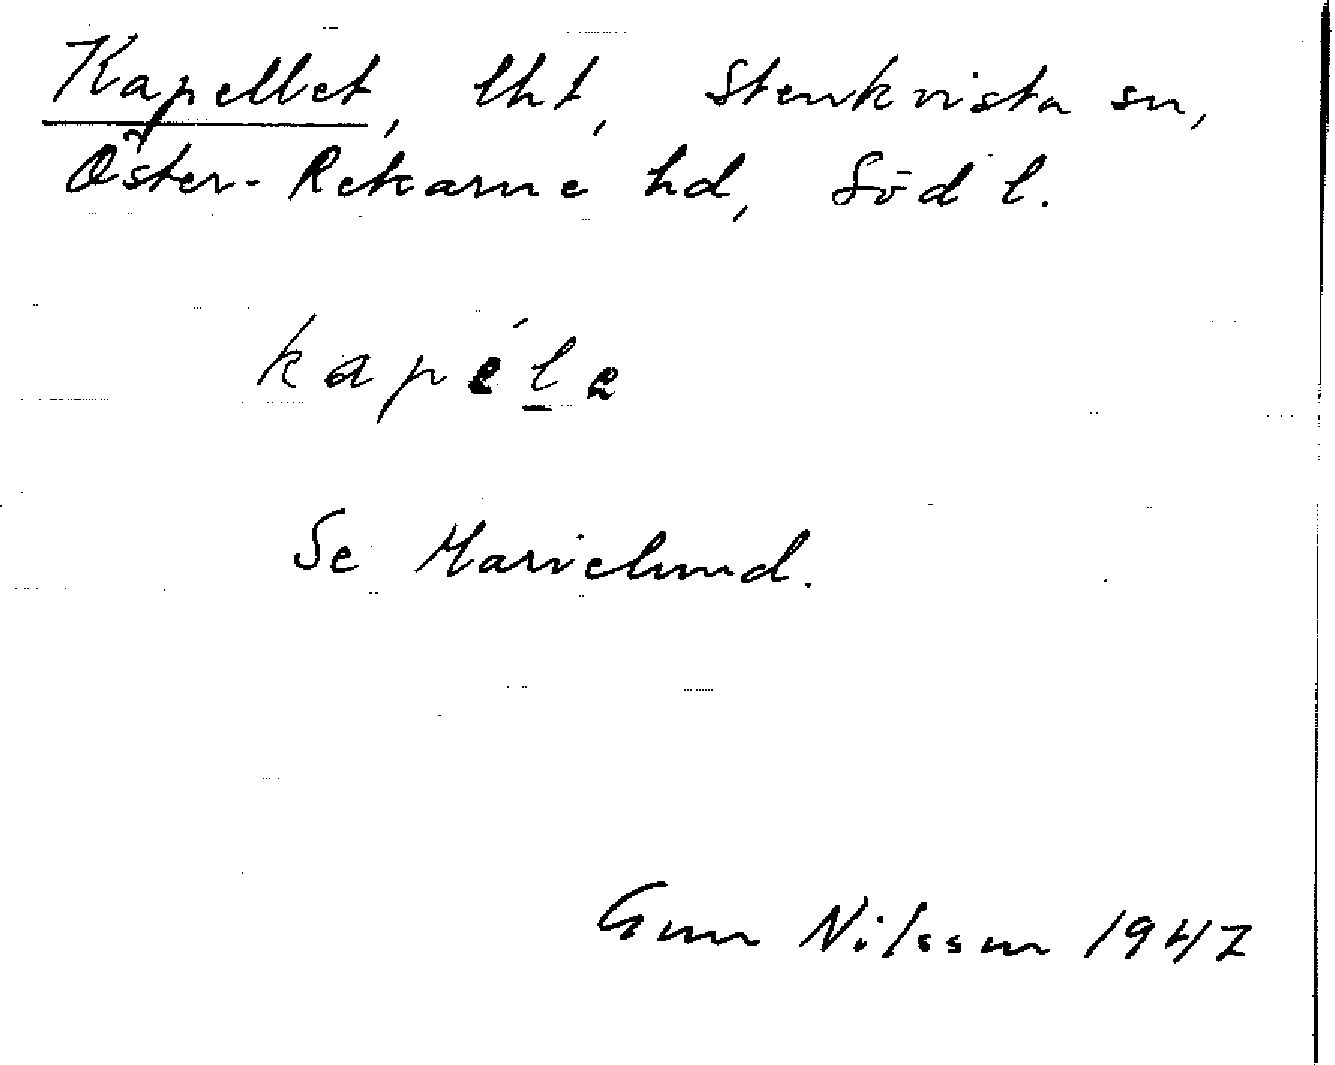 Kapellet, lht, Stenkvista sn,
Öster-Rekarne hd, Söd l.
kapéle
Se Marielund.
Gun Nilsson 1947